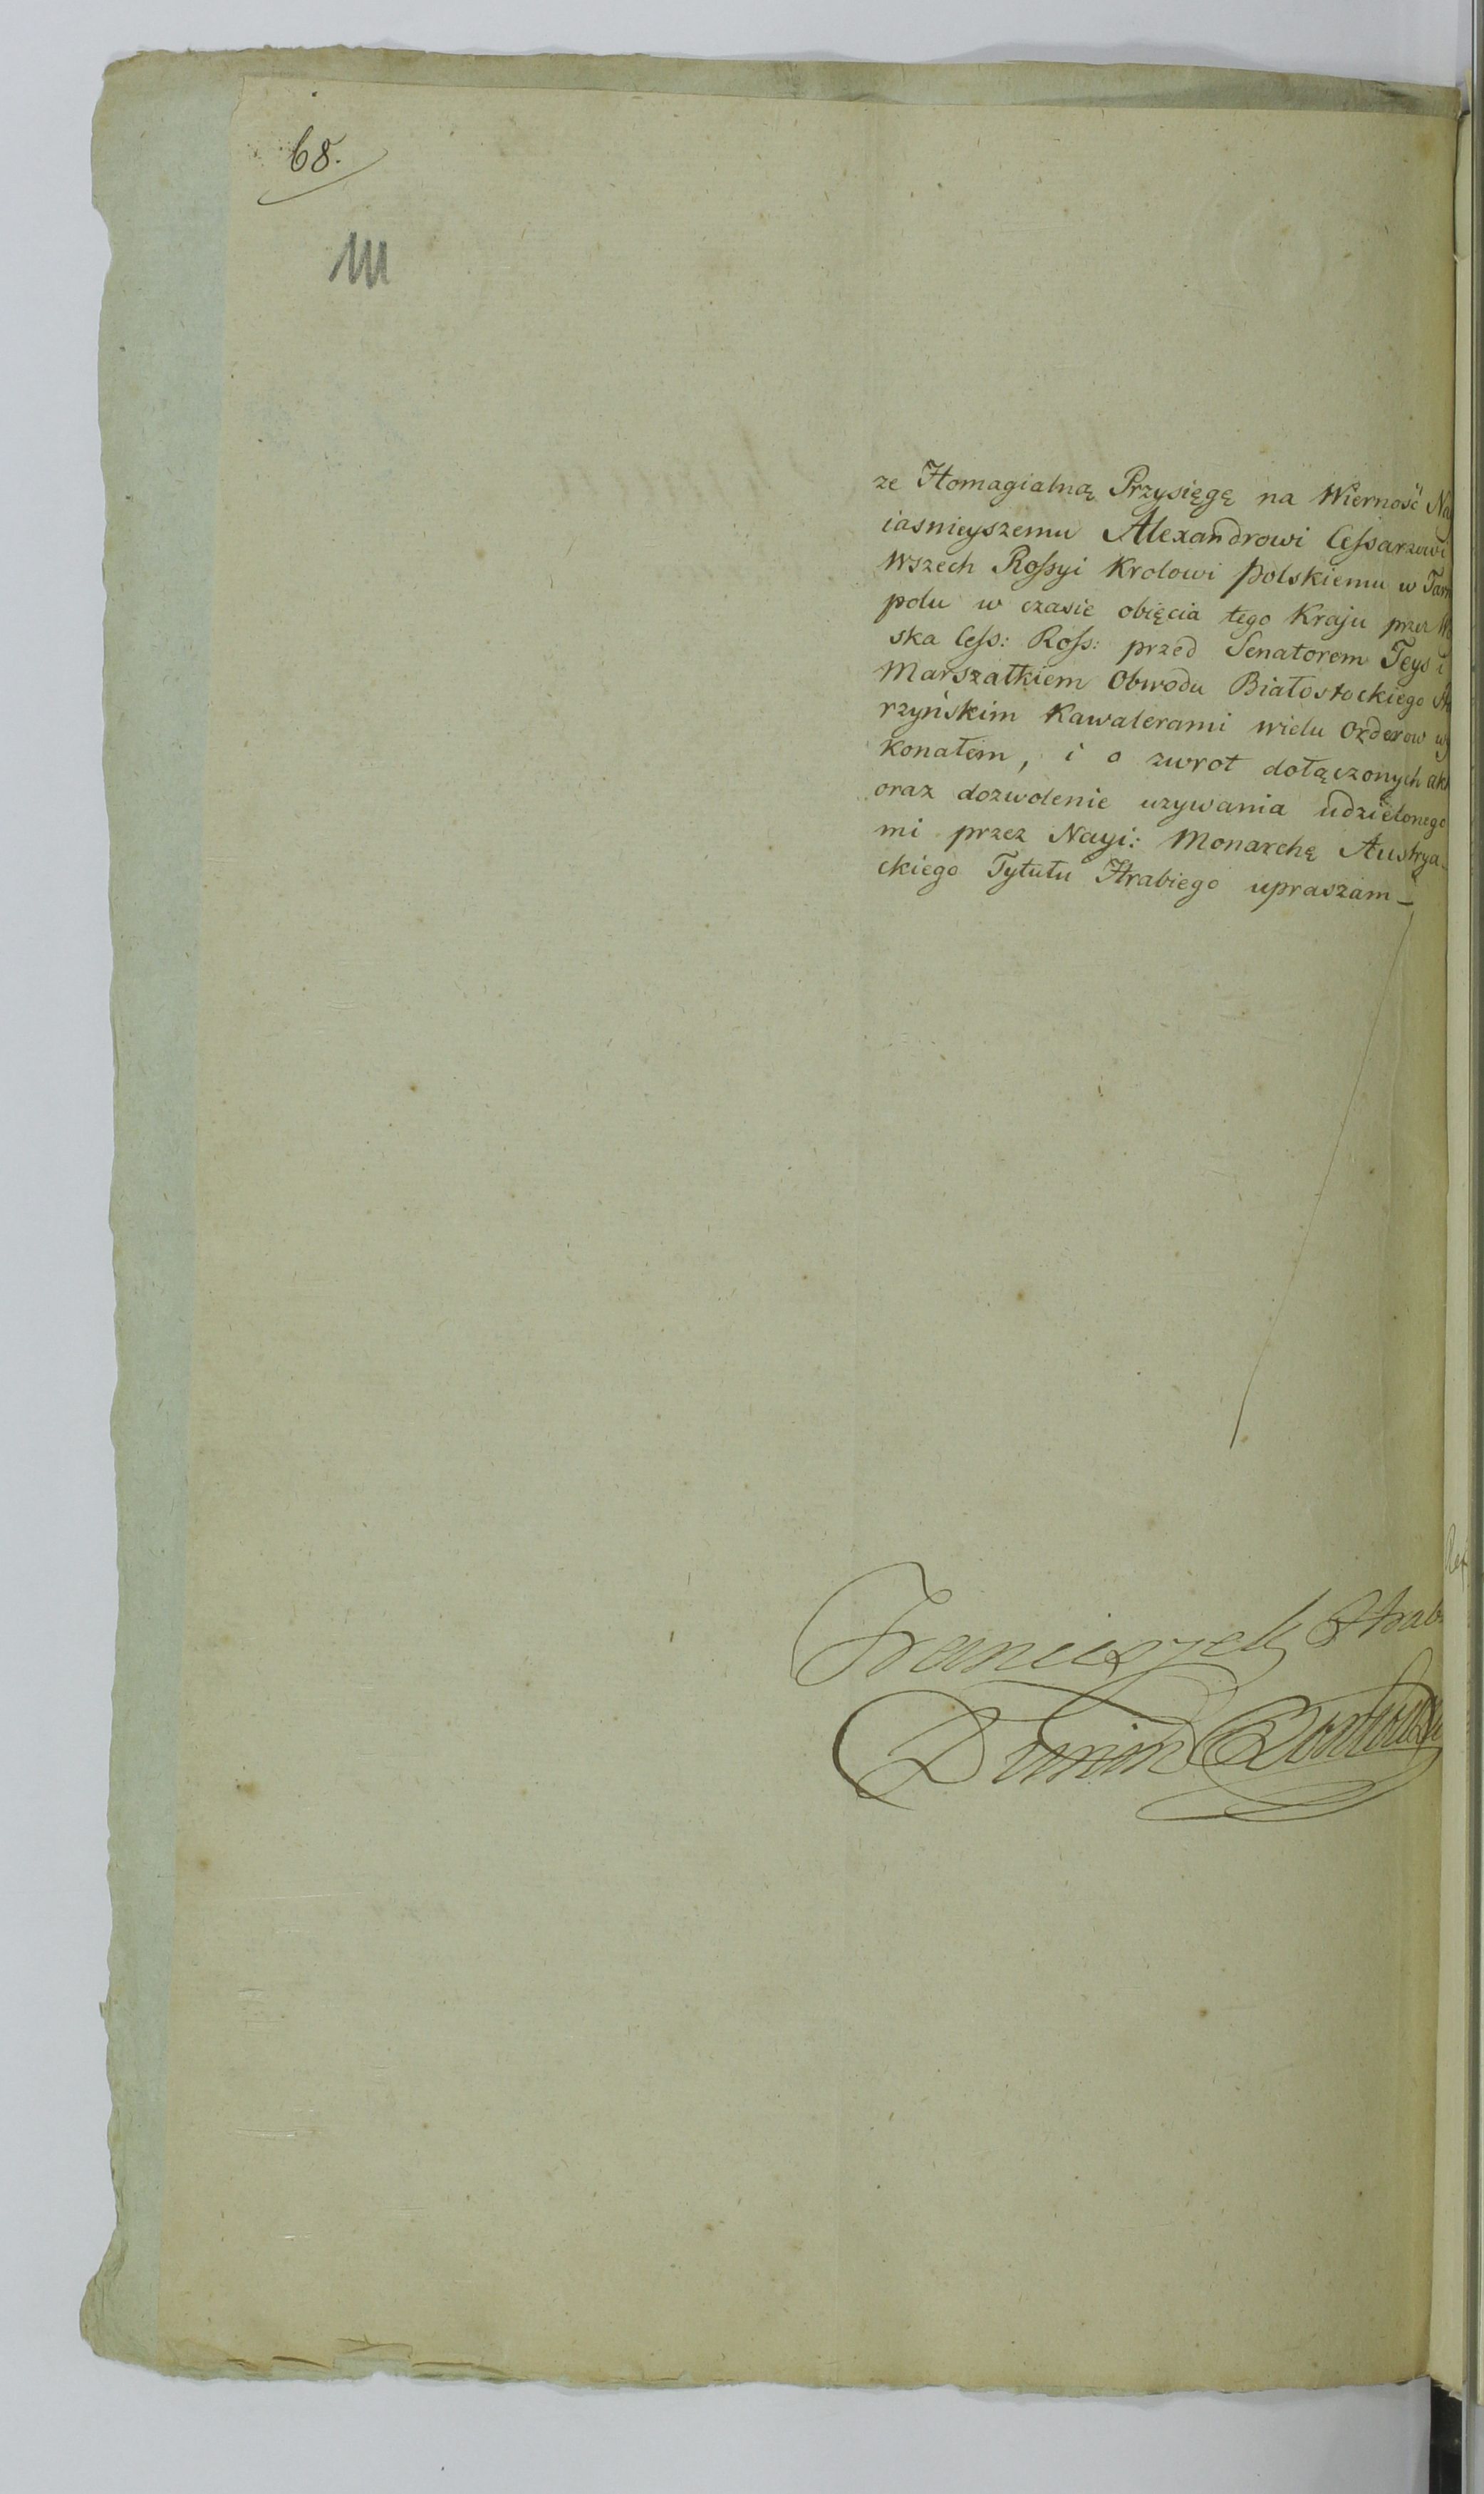 68.
111
ze Homagialną Przysięgę na Wierność Na
iasnieyszemu Alexandrowi Cessarzowi
Wszech Rossyi Krolowi Polskiemu w Tarn
polu w czasie obięcia tego Kraju przez
ska Cess: Ross: przed Senatorem Teys i
Marszałkiem Obwodu Białostockiego
rzyńskim Kawalerami wielu Orderow wy
konałem, i o zwrot dołączonych akt
oraz dozwolenie uzywania udzielonego
mi przez Nayi: Monarchę Austrya-
ckiego Tytułu Hrabiego upraszam_
Franciszek Hrab
Dunin